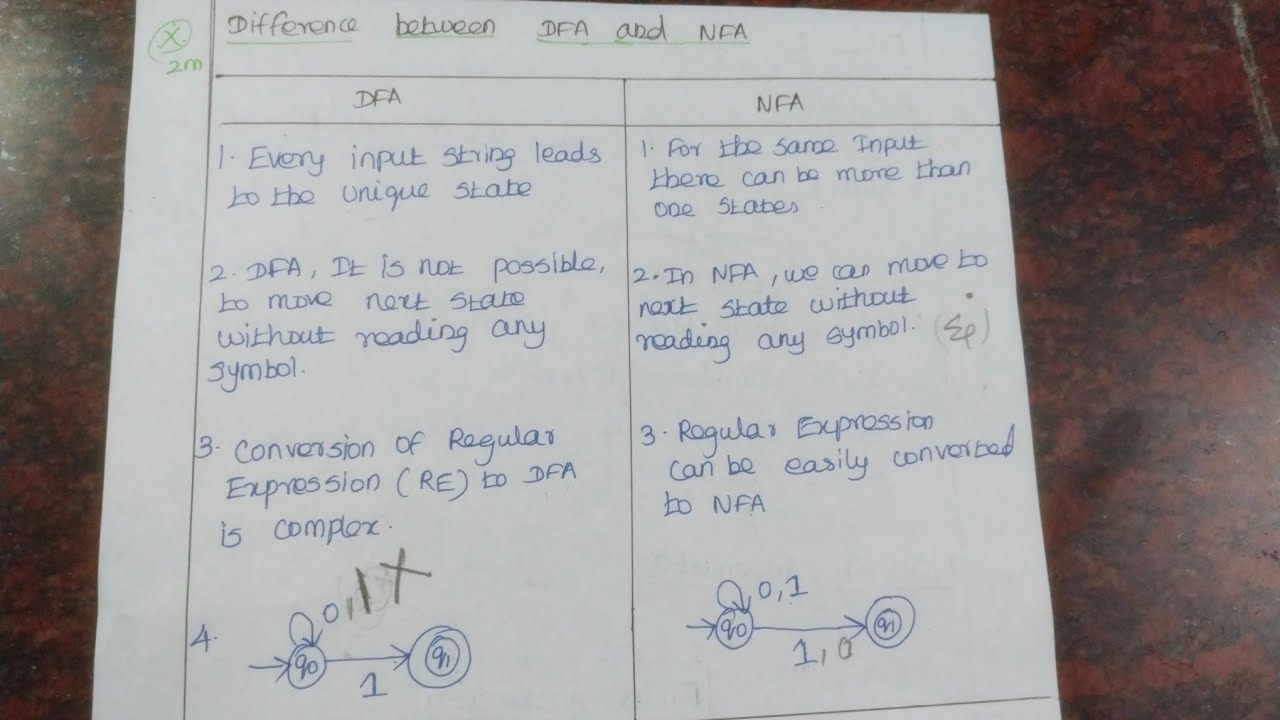 X
2m
Difference between DFA and NFA
DFA
1. Every input string leads
to the unique state
2. DFA, It is not possible,
to move next state
without reading any
symbol.
3. Conversion of Regular
Expression (RE) to DFA
is complex.
4.
0,1 X
q0
1
q1
NFA
1. For the same Input
there can be more than
one states.
2. In NFA, we can move to
next state without
reading any symbol.
3. Regular Expression
can be easily converted
to NFA
0,1
q0
1,0
q1